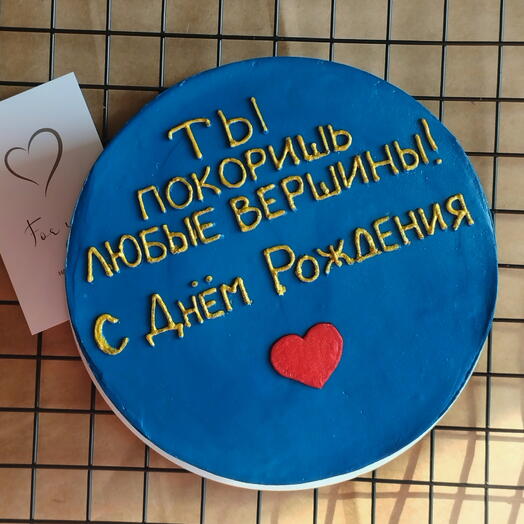 Ты
покоришь
любые вершины!
с Днём Рождения
For